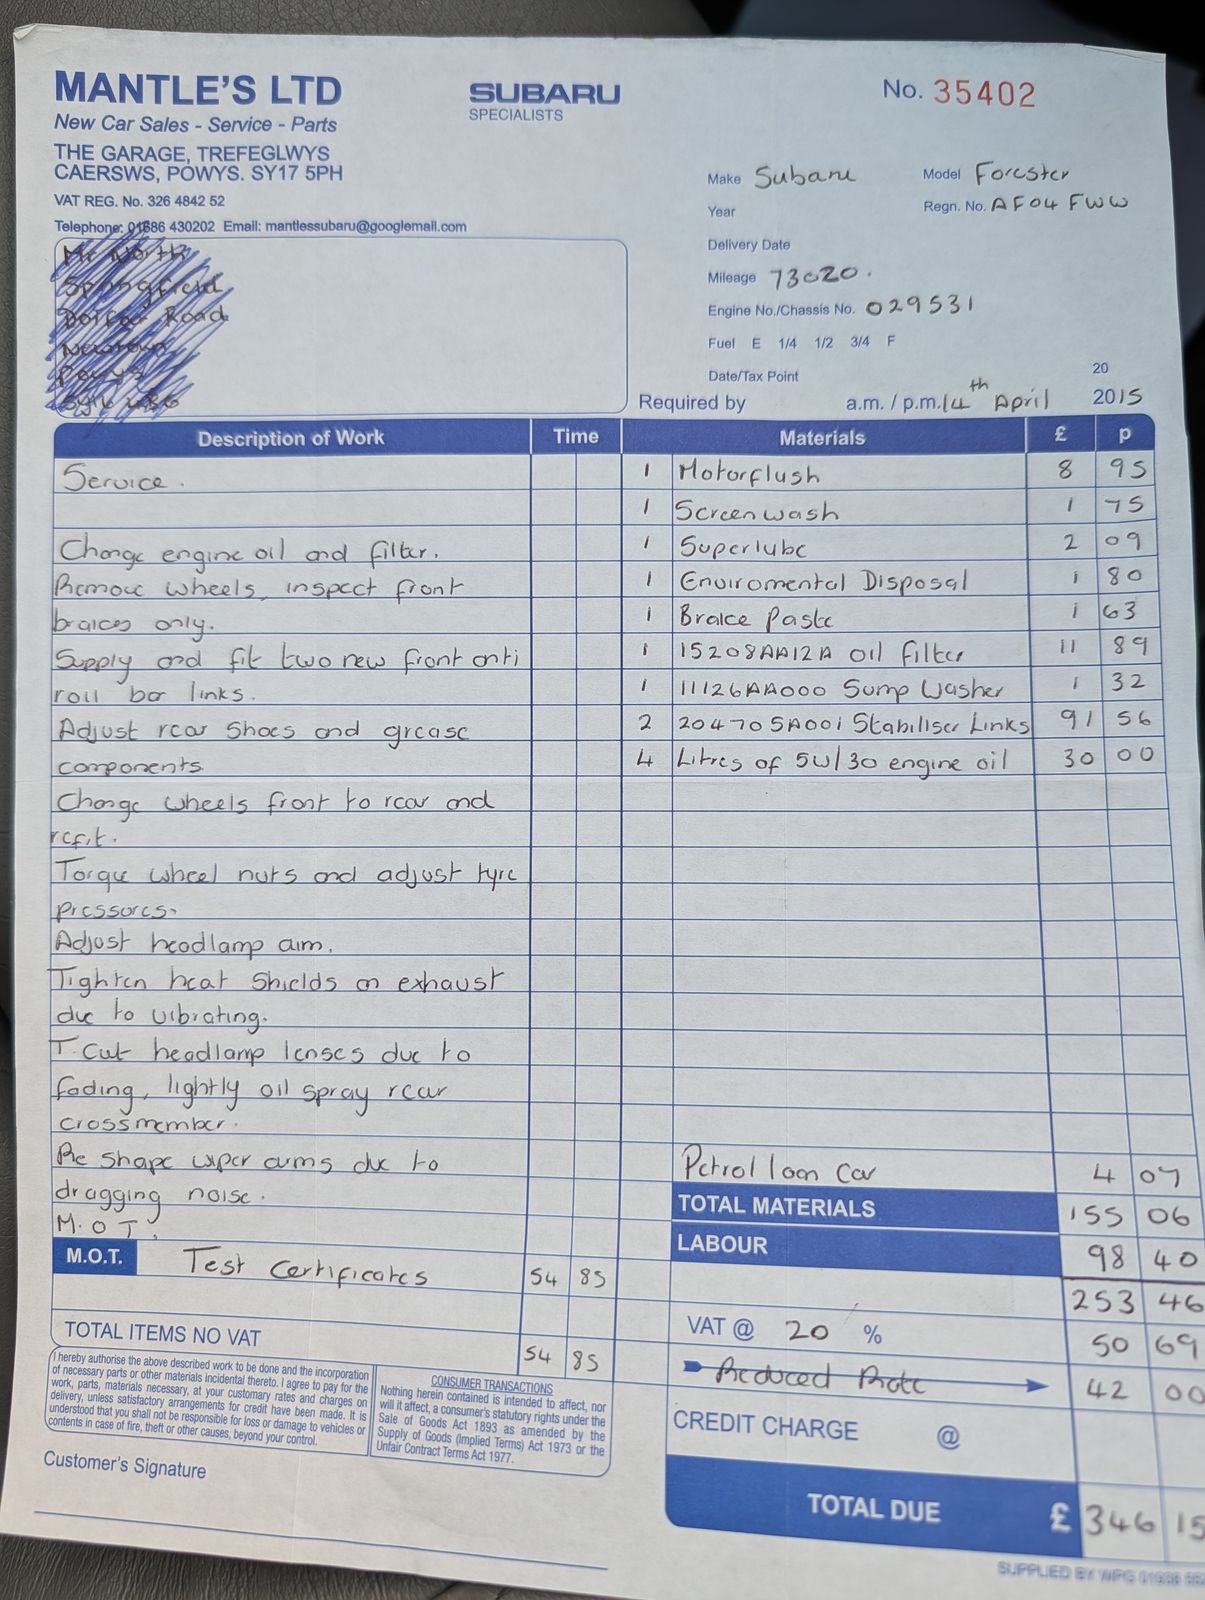 MANTLE'S LTD
New Car Sales - Service - Parts
THE GARAGE, TREFEGLWYS
CAERSWS, POWYS. SY17 5PH
VAT REG. No. 326 4842 52
Telephone: 01686 430202 Email: mantlessubaru@googlemail.com
SUBARU
SPECIALISTS
No. 35402
Make Subaru Model Forester
Year Regn. No. AF04 FWW
Delivery Date
Mileage 73020.
Engine No./Chassis No. 029531
Fuel E 1/4 1/2 3/4 F
Date/Tax Point 20
Required by a.m. / p.m. 14th April 2015
Description of Work Time Materials £ p
Service. 1 Motorflush 8 95
1 Screenwash 1 75
Change engine oil and filter. 1 Superlube 2 09
Remove wheels, inspect front 1 Enviromental Disposal 1 80
brakes only. 1 Brake Paste 1 63
Supply and fit two new front anti 1 15208AA12A Oil Filter 11 89
roll bar links. 1 11126AA000 Sump Washer 1 32
Adjust rear shoes and grease 2 20470SA001 Stabiliser Links 91 56
components 4 Litres of 5W/30 engine oil 30 00
Change wheels front to rear and
refit.
Torque wheel nuts and adjust tyre
pressures.
Adjust headlamp aim.
Tighten heat shields on exhaust
due to vibrating.
T.Cut headlamp lenses due to
fading, lightly oil spray rear
crossmember.
Re shape wiper arms due to Petrol loan car 4 07
dragging noise. TOTAL MATERIALS 155 06
M.O.T. LABOUR 98 40
M.O.T. Test Certificates 54 85
253 46
TOTAL ITEMS NO VAT 54 85
VAT @ 20 % 50 69
Reduced Rate 42 00
CREDIT CHARGE @
TOTAL DUE £ 346 15
I hereby authorise the above described work to be done and the incorporation
of necessary parts or other materials incidental thereto. I agree to pay for the
work, parts, materials necessary, at your customary rates and charges on
delivery, unless satisfactory arrangements for credit have been made. It is
understood that you shall not be responsible for loss or damage to vehicles or
contents in case of fire, theft or other causes, beyond your control.
CONSUMER TRANSACTIONS
Nothing herein contained is intended to affect, nor
will it affect, a consumer's statutory rights under the
Sale of Goods Act 1893 as amended by the
Supply of Goods (Implied Terms) Act 1973 or the
Unfair Contract Terms Act 1977.
Customer's Signature
SUPPLIED BY WPG